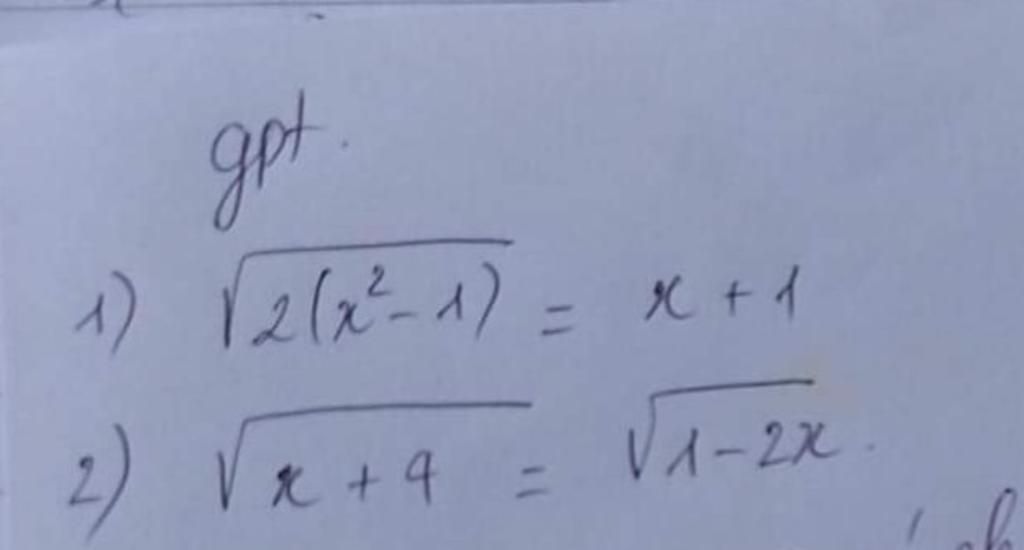 gpt.
1) √2(x²-1) = x + 1
2) √x + 9 = √1-2x.